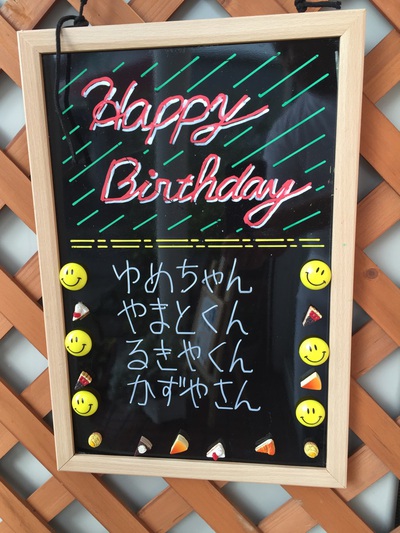 Happy
Birthday
ゆめちゃん
やまとくん
るきやくん
かずやさん